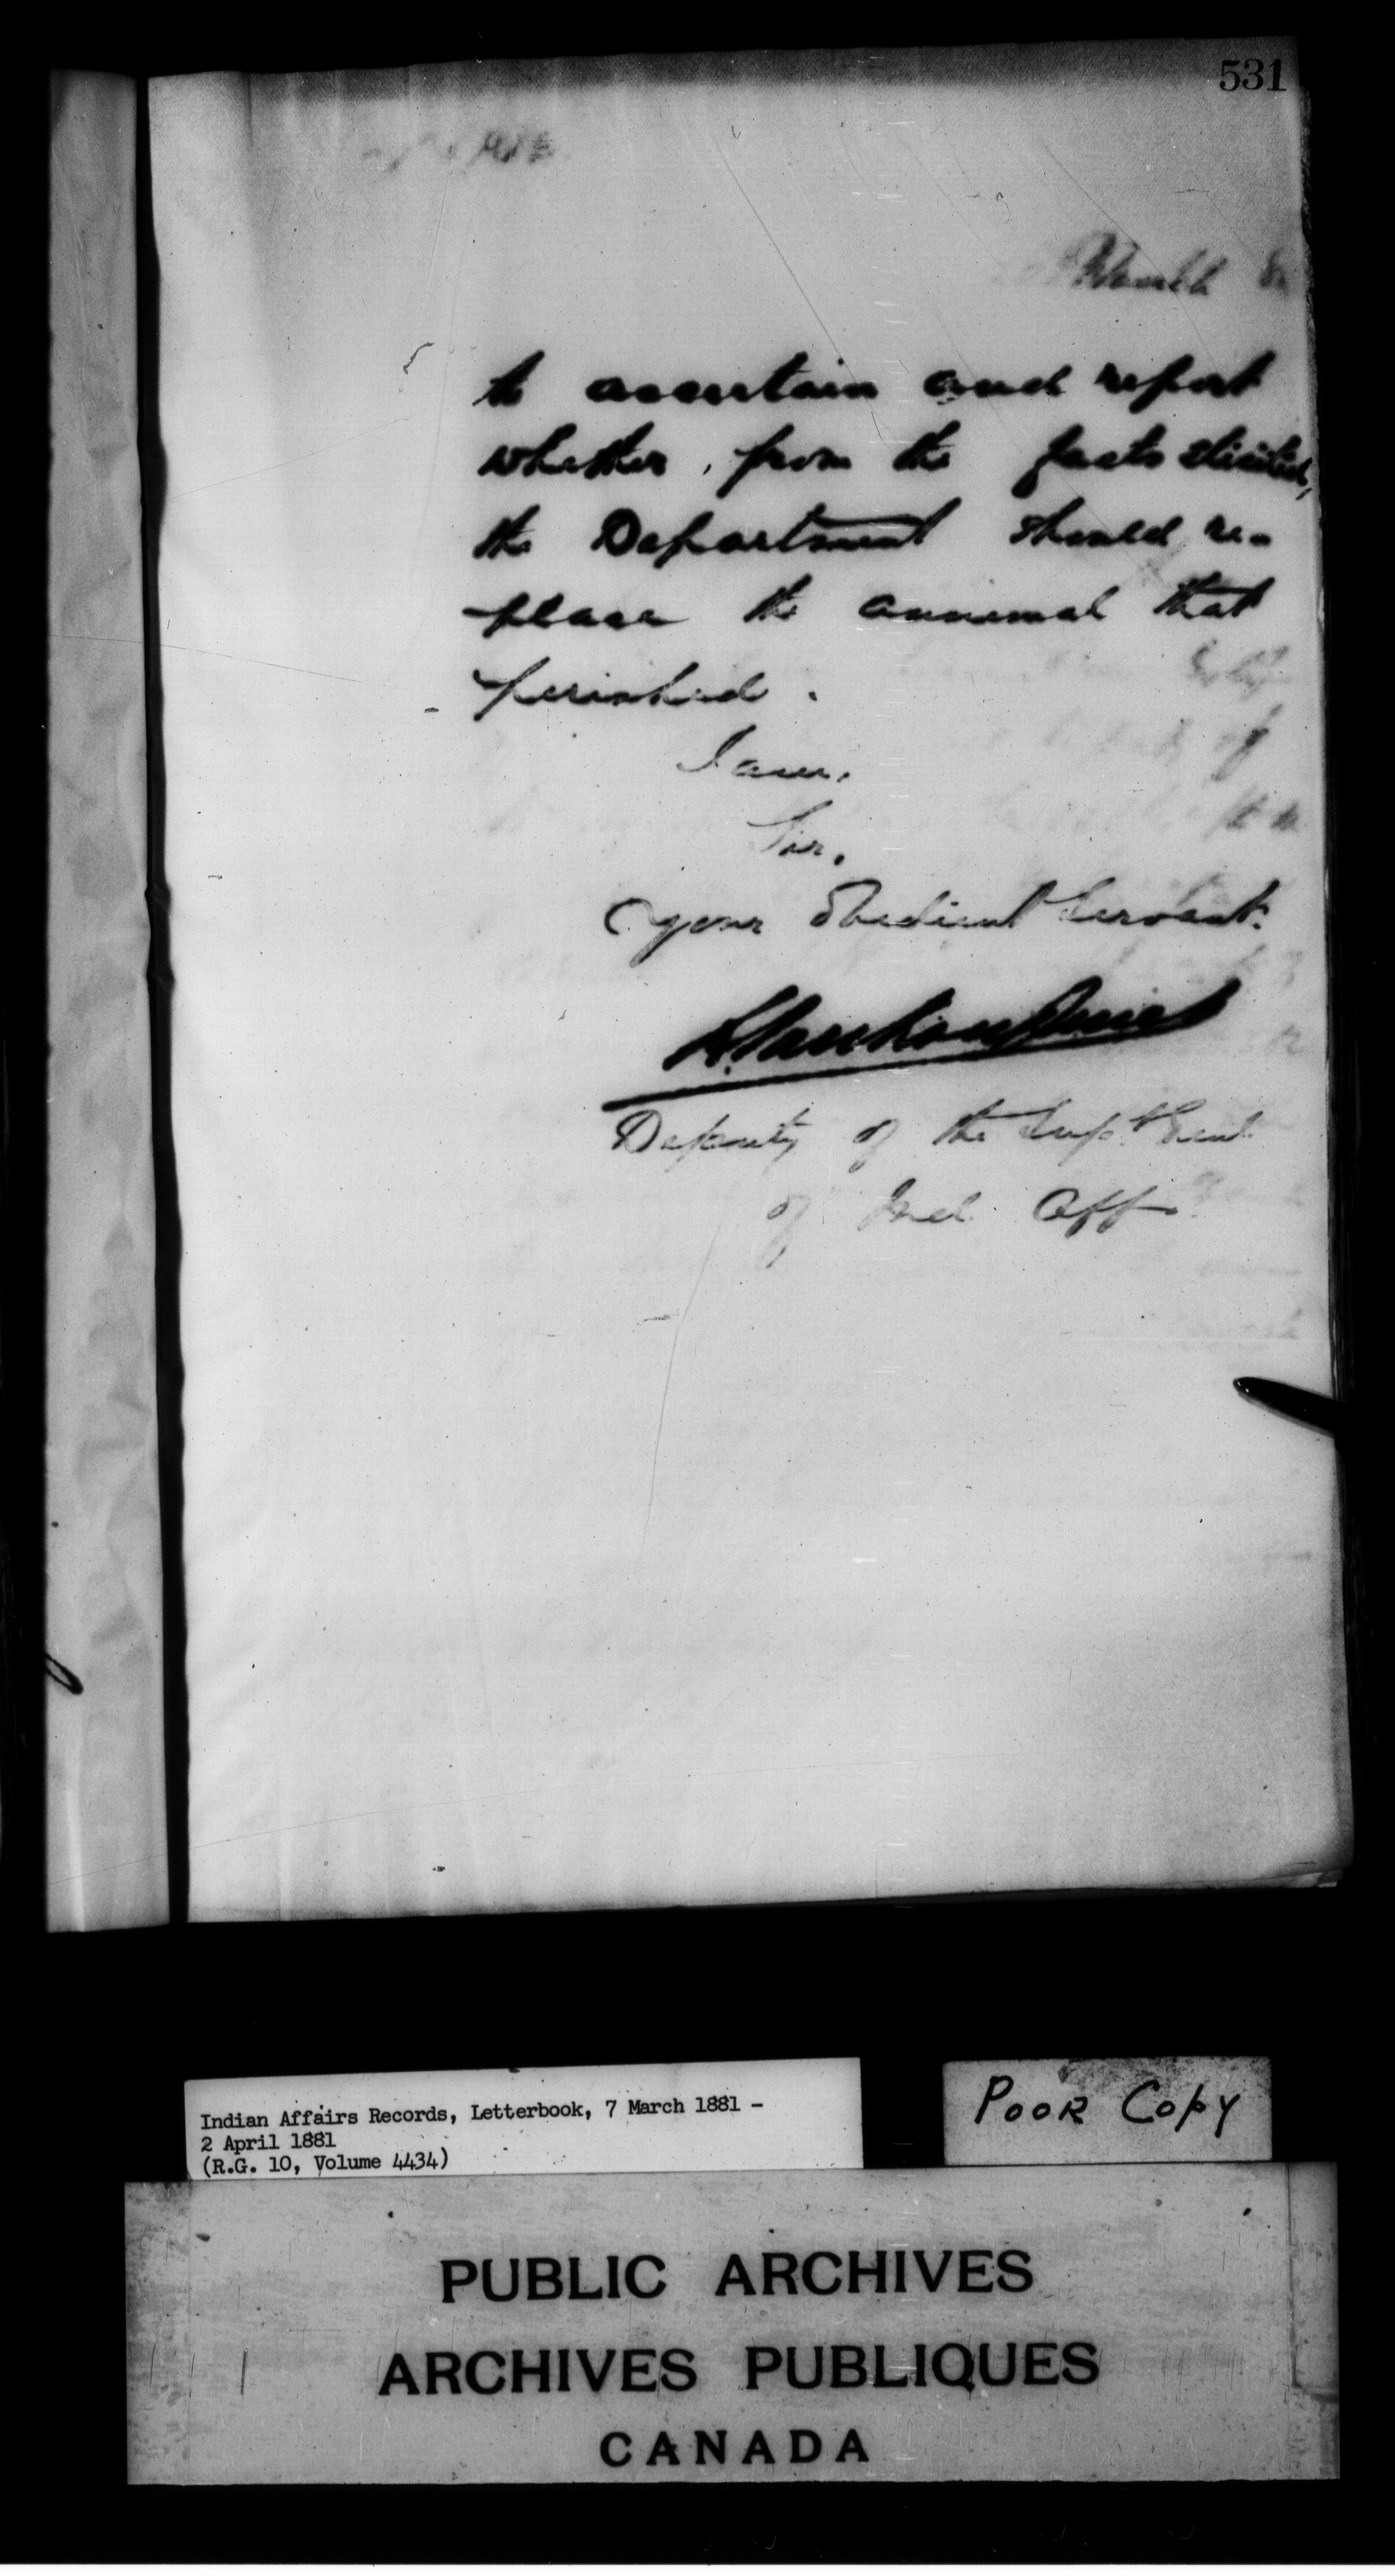 531
to ascertain and report
whether, from the facts elicited,
the Department should re-
place the annimal that
perished.
I am,
Sir,
your Obedient Servant.
L. Vankoughnet
Deputy of the Supt Genl
of Ind Affs
Indian Affairs Records, Letterbook, 7 March 1881 -
2 April 1881
(R.G. 10, Volume 4434)
POOR COPY
PUBLIC ARCHIVES
ARCHIVES PUBLIQUES
CANADA